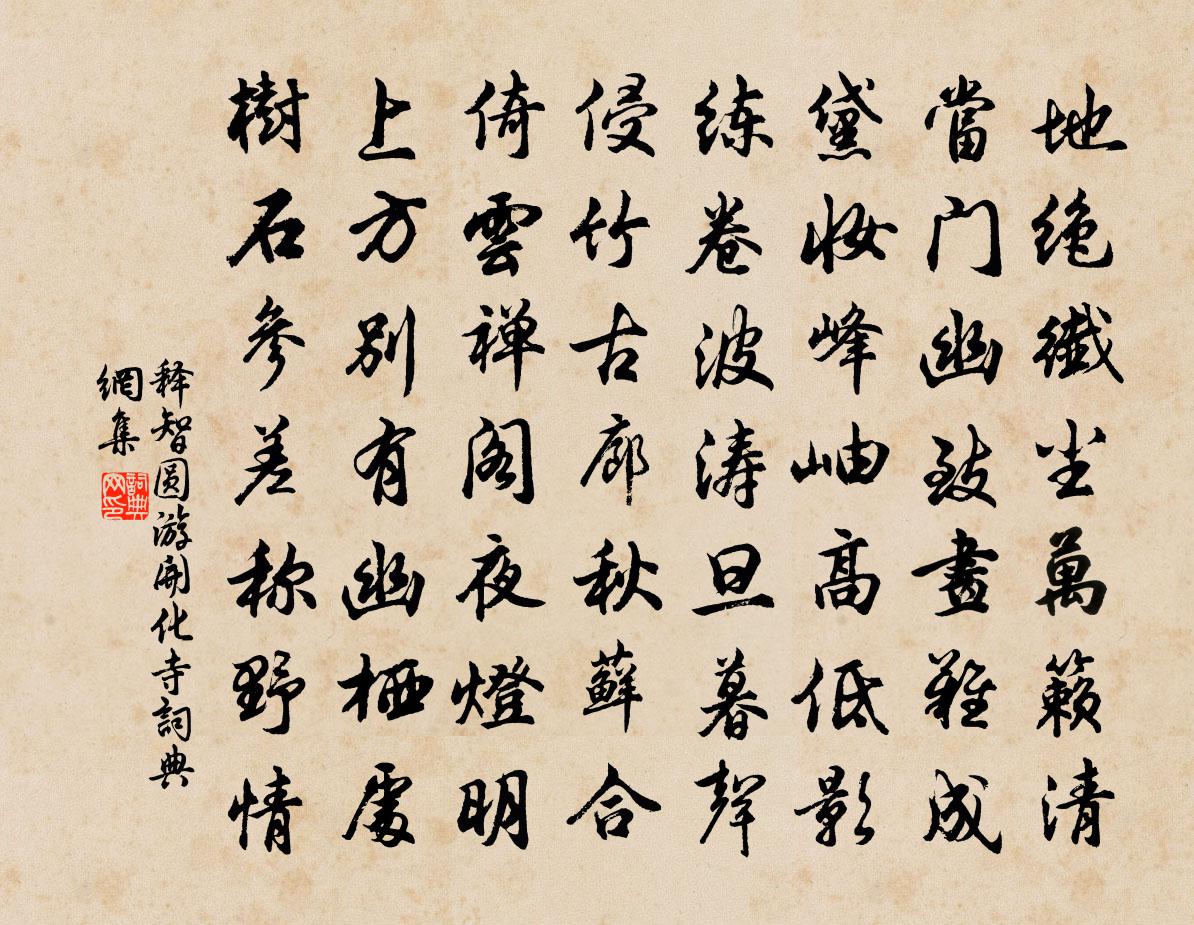 地绝纖尘萬籟清
當门幽致畫難成
黛妆峰岫高低影
练卷波涛旦暮聲
侵竹古廊秋蘚合
倚雲禅阁夜燈明
上方别有幽栖處
樹石参差称野情
释智圆游開化寺詞典
網集
詞典
网印